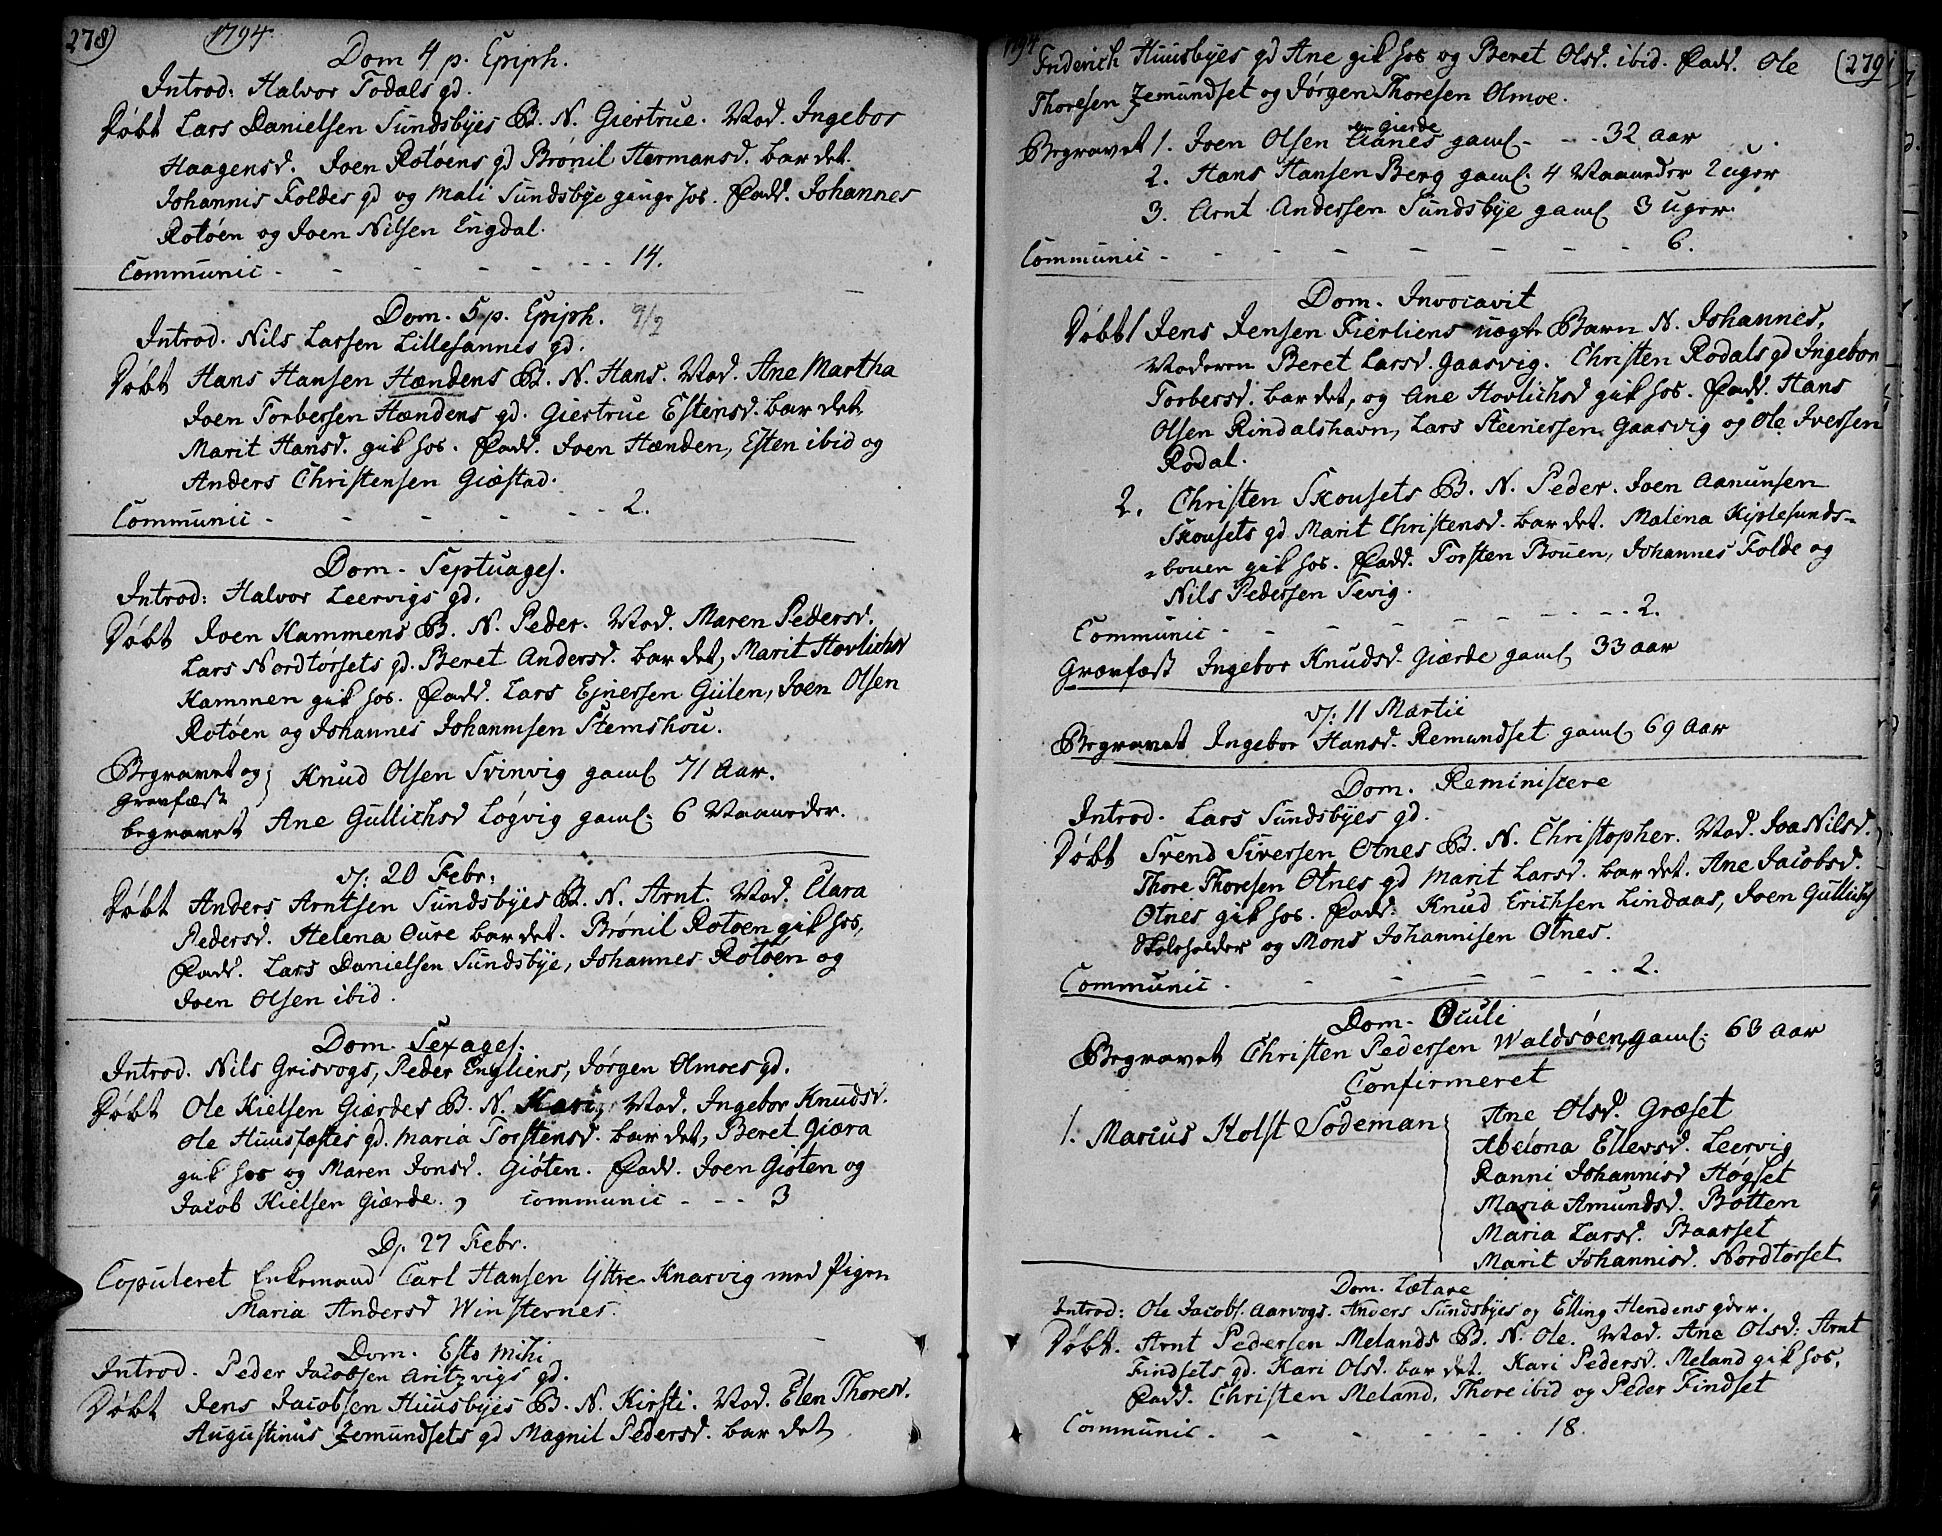 278 1794
Dom 4 p. Epiph.
Introd: Halvor Todals gd.
Døbt Lars Danielsen Sundsbyes B. N. Giertrue. Mod. Ingebor
Haagensd. Joen Rotøens gd Brønil Hermansd. bar det.
Johannis Foldes gd og Mali Sundsbye ginge hos. Fadd. Johannes
Rotøen og Joen Nilsen Engdal.
Communic - - - - - - - 14.
Dom. 5 p. Epiph. 9/2
Introd. Nils Larsen Lillefannes gd.
Døbt Hans Hansen Hændens B. N. Hans. Mod. Ane Martha
Joen Torbersen Hændens gd. Giertrue Estensd. bar det
Marit Hansd. gik hos. Fadd. Joen Hænden, Esten ibid og
Anders Christensen Giæstad.
Communic - - - - - - - 2.
Dom - Septuages.
Introd: Halvor Leervigs gd.
Døbt Joen Hammens B. N. Peder. Mod. Maren Pedersd.
Lars Nordtørsets gd. Beret Andersd. bar det, Marit Hovlichsd
Hammen gik hos. Fadd. Lars Ejnersen Gülen, Joen Olsen
Rotøen og Johannes Johannisen Stemshou.
Begravet og
Gravfæst } Knud Olsen Svinvig gaml 71 Aar.
begravet Ane Gullichsd Løgvig gaml: 6 Maaneder.
d: 20 Febr:
Døbt Anders Arntsen Sundsbyes B. N. Arnt. Mod: Clara
Pedersd. Helena Oure bar det. Brønil Rotøen gik hos,
Fadd. Lars Danielsen Sundsbye, Johannes Rotøen og
Joen Olsen ibid.
Dom. Sexages.
Introd. Nils Grisvogs, Peder Engliens, Jørgen Olmoes gd.
Døbt Ole Kielsen Giærdes B. N. Kari, Mod. Ingebor Knudsd.
Ole Huusfastes gd. Maria Torstensd. bar det, Beret Giæra
gik hos og Maren Jonsd. Giøten. Fadd. Joen Giøten og
Jacob Kielsen Giærde. , Communic - - - 3
D. 27 Febr.
Copuleret Enkemand Carl Hansen Yttre-Knarvig med Pigen
Maria Andersd Winsternes.
Dom. Esto mihi
Introd. Peder Jacobsen Aritzvigs gd.
Døbt Jens Jacobsen Huusbyes B. N. Kirsti. Mod. Elen Thoresd.
Augustinus Zemundsets gd Magnil Pedersd. bar det
1794 279
Friderich Huusbyes gd Ane gik hos og Beret Olsd. ibid. Fadd. Ole
Thoresen Zemundset og Jørgen Thoresen Olmoe.
Begravet 1. Joen Olsen Gierde gaml - - - 32 aar
2. Hans Hansen Berg gaml. 4 Maaneder 2 uger
3. Arnt Andersen Sundsbye gaml 3 uger.
Communic - - - - - - - 6.
Dom. Invocavit
Døbt 1 Jens Jensen Fierliens uægte Barn N. Johannes,
Moderen Beret Larsd. Gaasvig. Christen Rodals gd Ingebor
Torbersd. bar det, og Ane Hovlichsd gik hos. Fadd. Hans
Olsen Rindalshavn, Lars Steenersen Gaasvig og Ole Iversen
Rodal.
2. Christen Skousets B. N. Peder. Joen Aanunsen
Skousets gd Marit Christensd. bar det. Malena Kiplesunds-
-bouen gik hos. Fadd. Torsten Bouen, Johannes Folde og
Nils Pedersen Sevig.
Communic - - - - - - - - 2.
Gravfæst Ingebor Knudsd. Giærde gaml 33 aar
d: 11 Martii
Begravet Ingebor Hansd. Remundset gaml 69 Aar
Dom. Reminiscere
Introd. Lars Sundsbyes gd.
Døbt Svend Siversen Otnes B. N. Christopher. Mod. Joa Nilsd.
Thore Thoresen Otnes gd Marit Larsd. bar det. Ane Jacobsd.
Otnes gik hos. Fadd: Knud Erichsen Lindaas, Joen Gullichs
Skoleholder og Mons Johannisen Otnes.
Communic. - - - - - - 2.
Dom. Oculi
Begravet Christen Pedersen Waldsøen gaml: 63 aar
Confirmeret
1. Marius Holst Sodeman
Ane Olsd. Græset
Abelona Ellevsd. Leervig
Ranni Johannisd Høgset
Maria Amundsd. Botten
Maria Larsd. Baarset
Marit Johannisd. Nordtørset
Dom. Lætare
Introd: Ole Jacobs. Aarvogs. Anders Sundsbyes og Elling Hendens gder.
Døbt. Arnt Pedersen Melands B. N. Ole. Mod. Ane Olsd: Arnt
Findsets gd. Kari Olsd. bar det. Kari Pedersd. Meland gik hos,
Fadd. Christen Meland, Thore ibid og Peder Findset
Communic. - - - - - - 18.